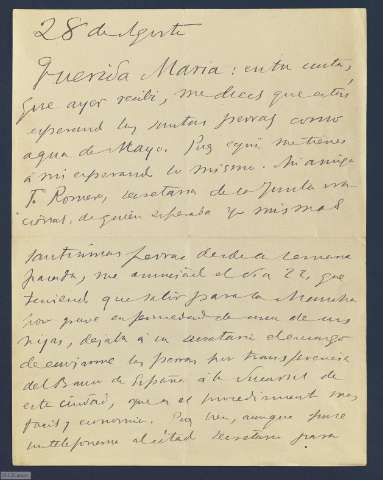 28 de Agosto
Querida María: en tu carta,
que ayer recibí, me dices que estás
esperando las santas perras como
agua de Mayo. Pues aquí me tienes
á mi esperando lo mismo. Mi amigo
T. Romero, secretario de la Junta na-
cional, de quien esperaba yo mismas
santísimas perras desde la semana
pasada, me anunció el día 22, que
teniendo que salir para la Mancha
por grave enfermedad de una de sus
hijas, dejaba á su secretario el encargo
de enviarme las perras por transferencia
del Banco de España á la Sucursal de
esta ciudad, que es el procedimiento mas
facil y economico. Pues bien, aunque puse
un telefonema al citado secretario para